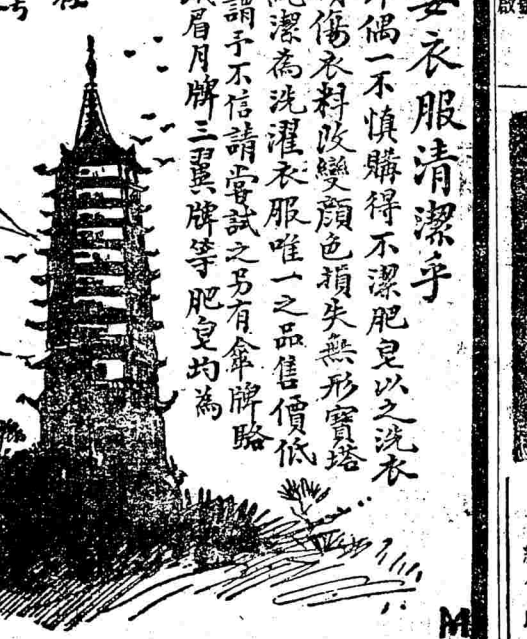 衣服清潔乎
偶一不慎購得不潔肥皂以之洗衣
傷衣料改變顏色損失無形寶塔
潔為洗濯衣服唯一之品售價低
謂予不信請嘗試之另有傘牌
眉月牌三翼牌等肥皂均為
M
啟